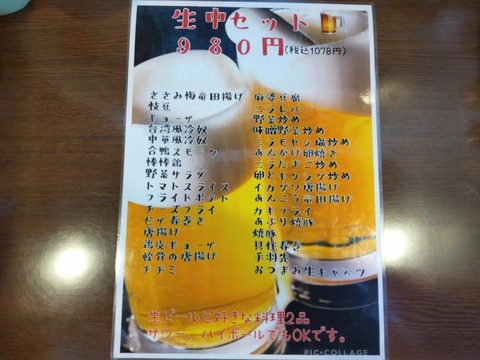 生中セット
980円(税込1078円)
ささみ梅竜田揚げ
枝豆
ギョーザ
台湾風冷奴
中華風冷奴
合鴨スモーク
棒棒鶏
野菜サラダ
トマトスライス
フライドポテト
チーズフライ
ピザ春巻き
唐揚げ
鶏皮ギョーザ
軟骨の唐揚げ
チヂミ
麻婆豆腐
ニラレバ
野菜炒め
味噌野菜炒め
ニラモヤシ塩炒め
あんかけ卵焼き
ニラたまご炒め
卵とキクラゲ炒め
イカゲソ唐揚げ
あんこう竜田揚げ
カキフライ
あぶり焼豚
焼豚
具住春巻
手羽先
おつまみ生キャベツ
生ビールと好きな料理2品
サワー、ハイボールでもOKです。
PIC•COLLAGE